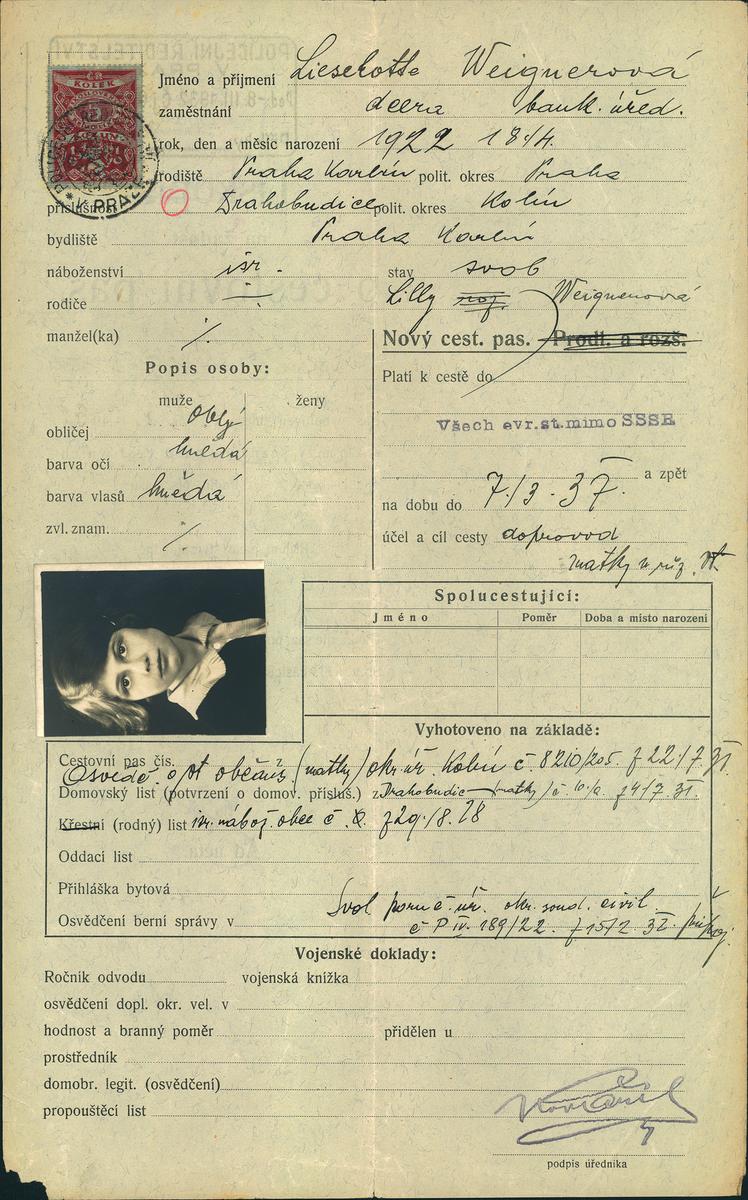 ČR
KOLEK
V PRAZE
Jméno a příjmení Lieselotte Weignerová
zaměstnání dcera bank. úřed.
rok, den a měsíc narození 1922 18/4.
rodiště Praha Karlín polit. okres Praha
příslušnost Drahobudice polit. okres Kolín
bydliště Praha Karlín
náboženství isr. stav svob
rodiče Lilly roz. Weignerová
manžel(ka) /.
Nový cest. pas. Prodl. a rozš.
Popis osoby:
Platí k cestě do
muže ženy
Všech evr.st.mimo SSSR
obličej oblý
barva očí hnědá
a zpět
barva vlasů hnědá
na dobu do 7/3 - 37.
zvl. znam. /.
účel a cíl cesty doprovod
matky
Spolucestující:
Jméno Poměr Doba a místo narození
Vyhotoveno na základě:
Cestovní pas čís.
Osvědč. o st. občans. (matky) okr. úř. Kolín č 8210/205. z 22/7.31.
Domovský list (potvrzení o domov. přísluš.) z Drahobudic matky č. z 4/7.31.
Křestní (rodný) list isr. nábož. obce č. z 29/8.28
Oddací list
Přihláška bytová
Svol poruč. úř. okr. soud. civil.
Osvědčení berní správy v č P IV. 189/22. z 15/2 32
Vojenské doklady:
Ročník odvodu vojenská knížka
osvědčení dopl. okr. vel. v
hodnost a branný poměr přidělen u
prostředník
domobr. legit. (osvědčení)
propouštěcí list
podpis úředníka